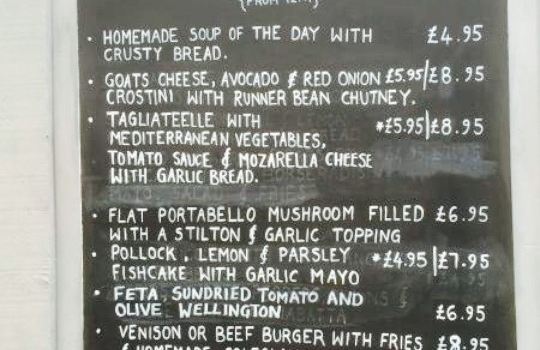 (FROM 12PM)
• HOMEMADE SOUP OF THE DAY WITH £4.95
CRUSTY BREAD.
• GOATS CHEESE, AVOCADO & RED ONION £5.95/£8.95
CROSTINI WITH RUNNER BEAN CHUTNEY.
• TAGLIATEELLE WITH *£5.95/£8.95
MEDITERRANEAN VEGETABLES,
TOMATO SAUCE & MOZARELLA CHEESE
WITH GARLIC BREAD.
• FLAT PORTABELLO MUSHROOM FILLED £6.95
WITH A STILTON & GARLIC TOPPING
• POLLOCK, LEMON & PARSLEY *£4.95/£7.95
FISHCAKE WITH GARLIC MAYO
• FETA, SUNDRIED TOMATO AND
OLIVE WELLINGTON £6.95
• VENISON OR BEEF BURGER WITH FRIES £8.95
& HOMEMADE